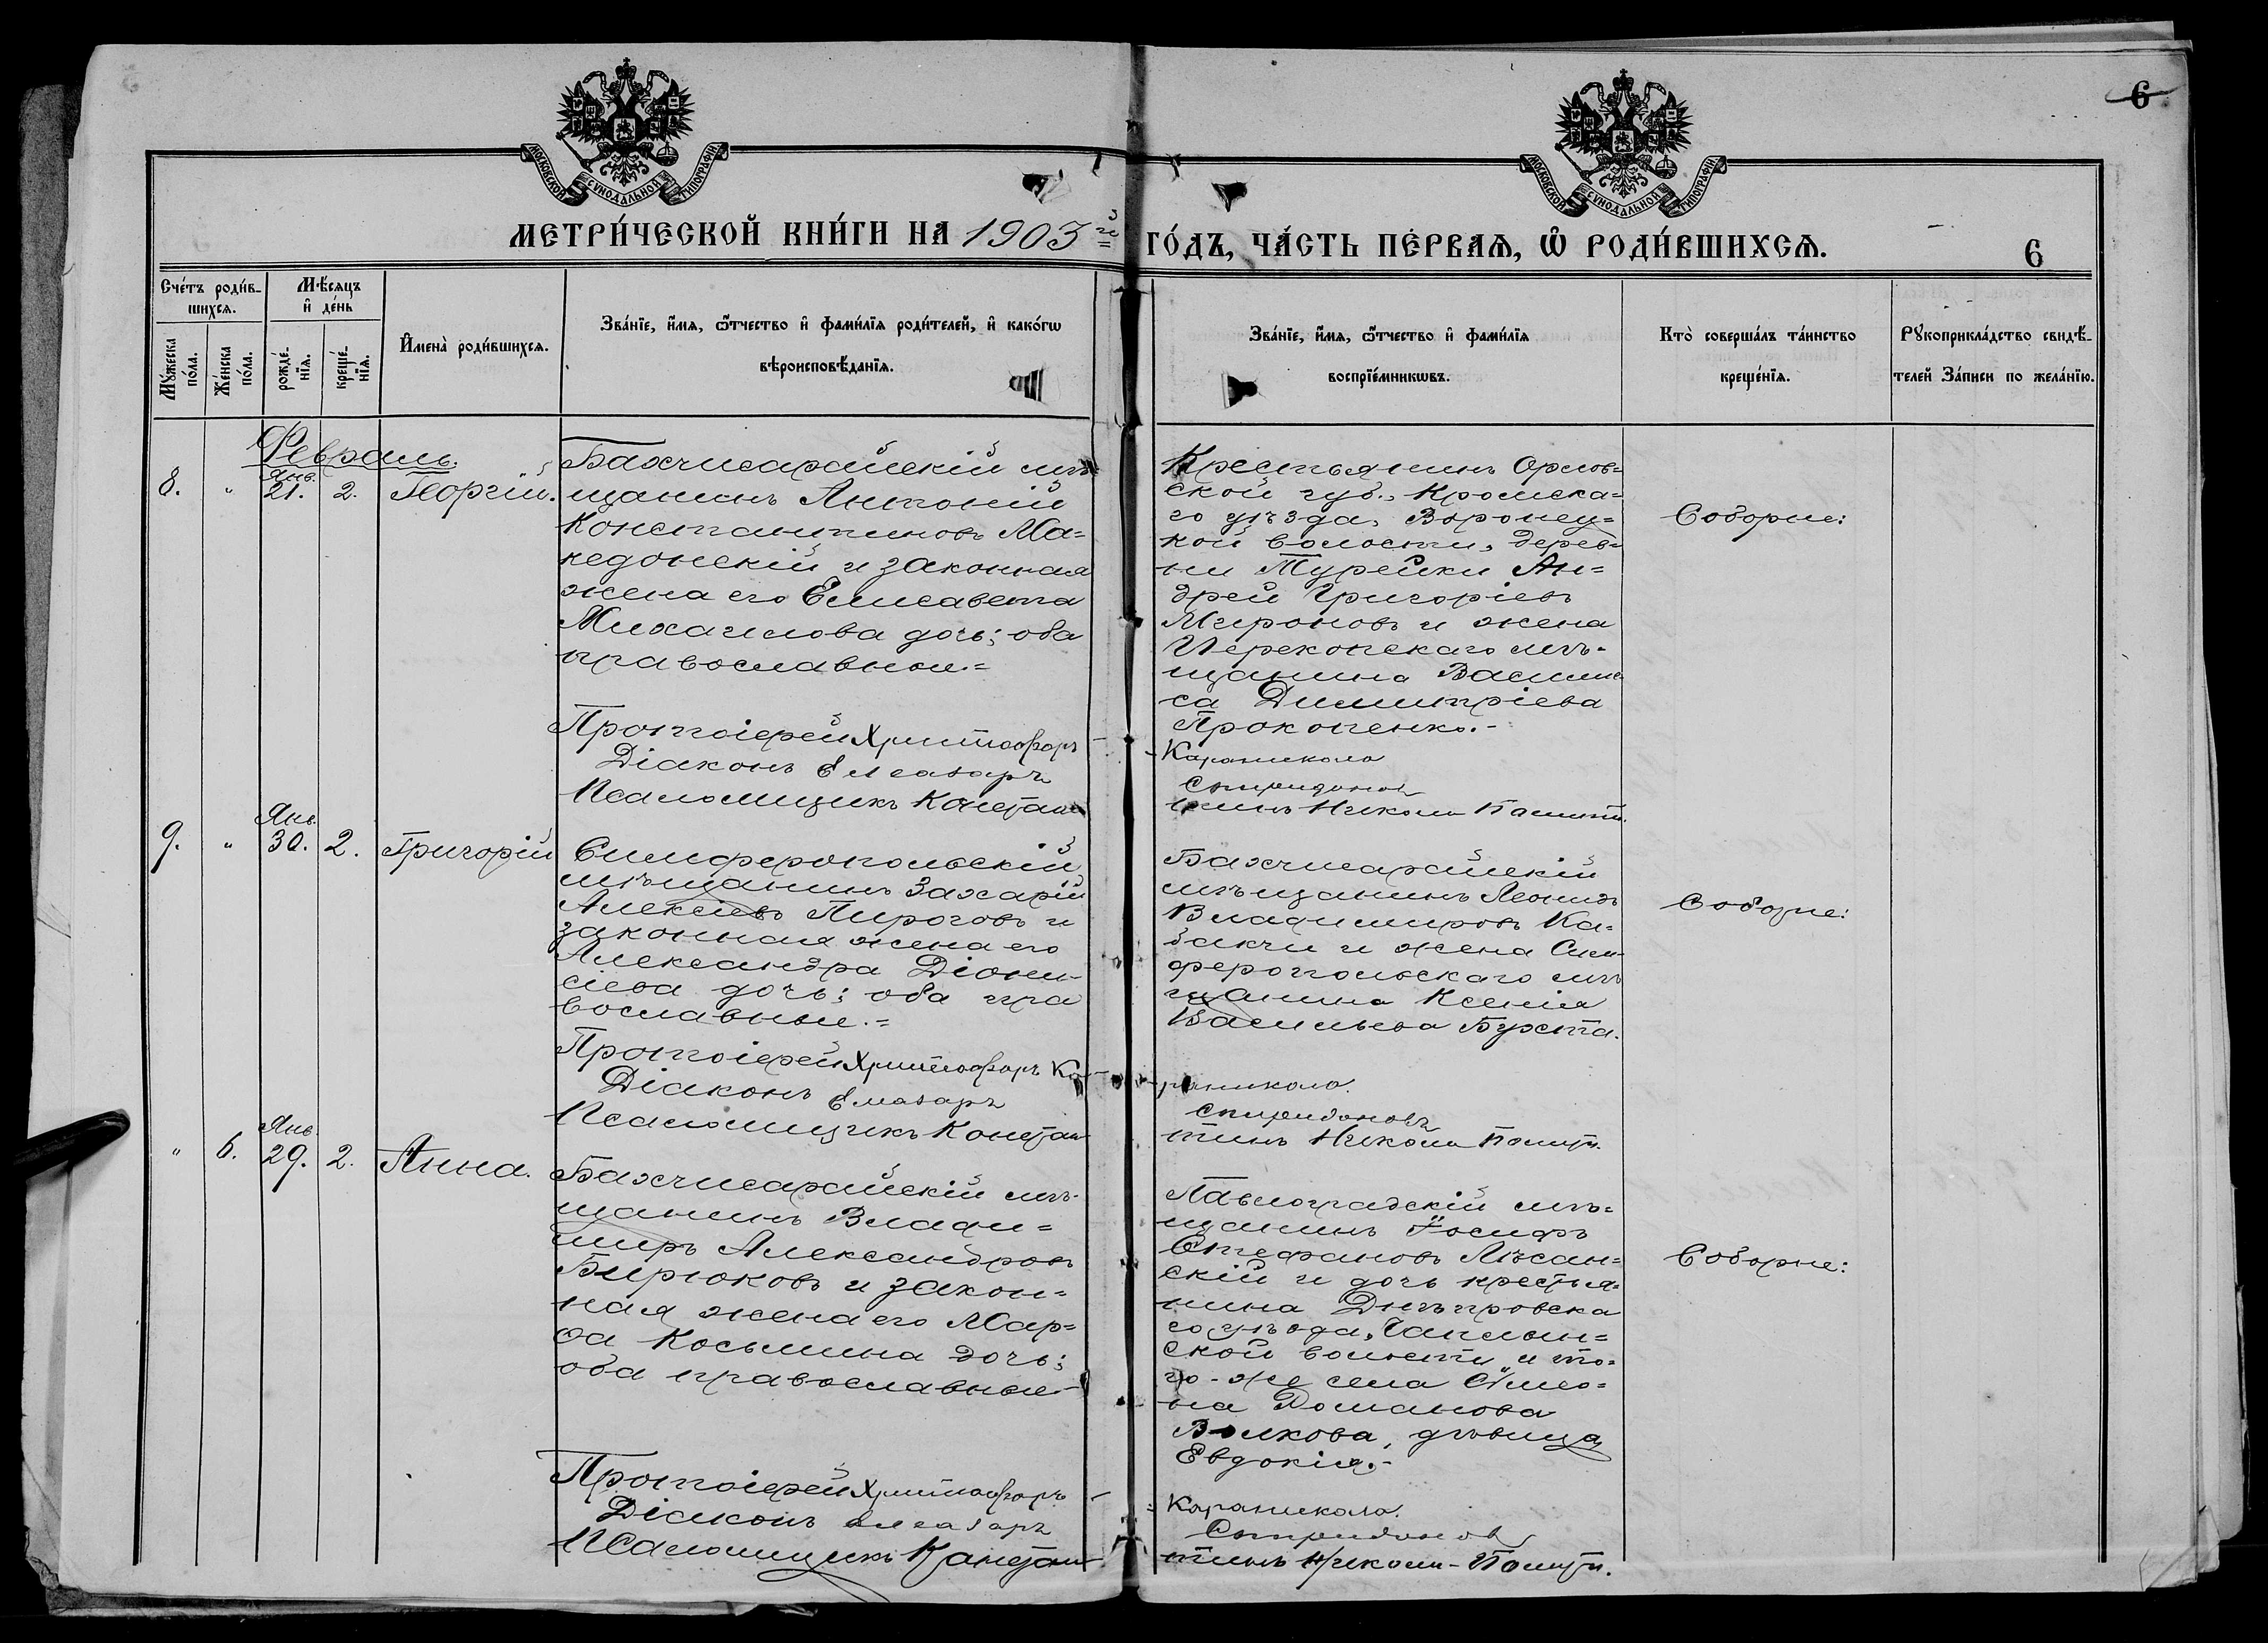 6
МОСКОВСКОЙ СѴНОДАЛЬНОЙ ТИПОГРАФІИ
МОСКОВСКОЙ СѴНОДАЛЬНОЙ ТИПОГРАФІИ
МЕТРИ́ЧЕСКОЙ КНИ́ГИ НА 1903й ГО́ДЪ, ЧА́СТЬ ПЕ́РВАЯ, Ѡ РОДИ́ВШИХСЯ.
6
Сче́тъ роди́в-
шихся.
Мѣ́сяцъ
и де́нь
Му́жеска по́ла.
Же́нска по́ла.
рожде́-
нїя.
креще́-
нїя.
Имена̀ роди́вшихся.
Зва́нїе, и́мя, ѻ҆́тчество и фами́лїя роди́телей, и како́гѡ
вѣроисповѣ́данїя.
Зва́нїе, и́мя, ѻ҆́тчество и фами́лїя
воспрїе́мникѡвъ.
Кто̀ соверша́лъ та́инство
креще́нїя.
Рꙋкоприкла́дство свидѣ́-
телей за́писи по жела́нїю.
Февраль.
8. " Янв. 21. 2. Георгій.
Бахчисарайскій мѣ-
щанинъ Антоній
Константиновъ Ма=
кедонскій и законная
жена его Елисавета
Михаилова дочь; оба
православные.=
Протоіерей Христофоръ
Діаконъ Елеазаръ
Псаломщикъ Констан
Крестьянинъ Орлов=
ской губ., Кромска=
го уѣзда, Воронец=
кой волости, дерев=
ни Турейки Ан=
дрей Григоріевъ
Мироновъ и жена
Перекопскаго мѣ-
щанина Васили
са Димитріева
Прокопенко.-
Караникола
Спиридоновъ
тинъ Николи
Соборне:
9. " Янв. 30. 2. Григорій
Симферопольскій
мѣщанинъ Захарій
Алексіевъ Пироговъ и
законная жена его
Александра Діони-
сіева дочь; оба пра
вославные.=
Протоіерей Христофоръ Ка
Діаконъ Елеазаръ
Псаломщикъ Констан
Бахчисарайскій
мѣщанинъ Леонидъ
Владимировъ Ка-
бакчи и жена Сим
феропольскаго мѣ
щанина Ксенія
Васильева Бухта.
раникола.
Спиридоновъ
тинъ Николи
Соборне:
" 6. Янв. 29. 2. Анна.
Бахчисарайскій мѣ-
щанинъ Влади=
миръ Александровъ
Бирюковъ и закон=
ная жена его Мар=
ѳа Косьмина дочь;
оба православные-
Протоіерей Христофоръ
Діаконъ Елеазаръ
Псаломщикъ Констан
Павлоградскій мѣ=
щанинъ Іосифъ
Стефановъ Лѣсан=
скій и дочь крестья-
нина Днѣпровска
го уѣзда, Чаплин=
ской волости, и то=
го-же села Сѵмео=
на Романова
Волкова, дѣвица
Евдокія.-
Караникола.
Спиридоновъ
тинъ Николи
Соборне: